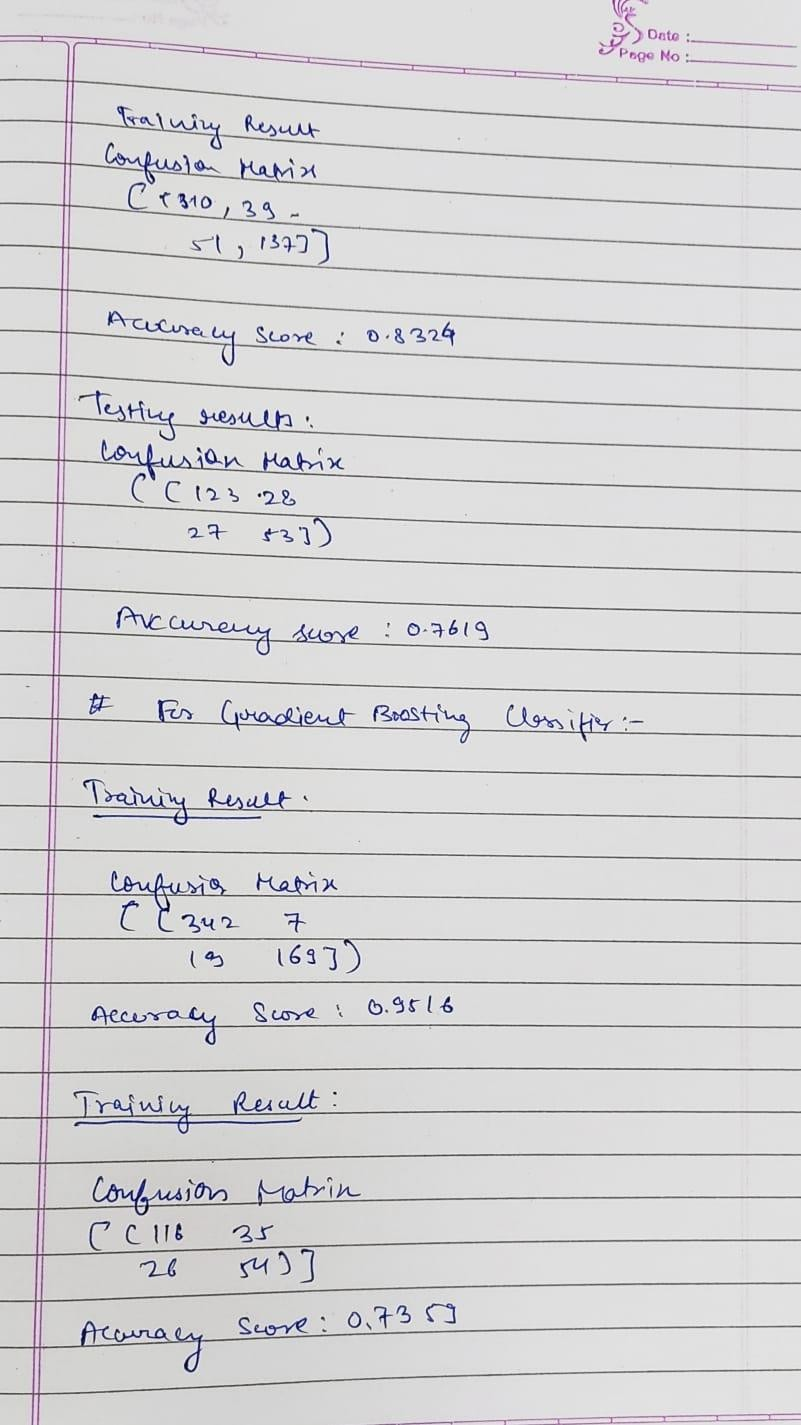 Date :
Page No :
Training Result
Confusion Matrix
[ [310, 39
51, 137]]
Accuracy Score : 0.8324
Testing results :
Confusion Matrix
[ [ 123 28
27 53])
Avccurency suore : 0.7619
# For Guradient Boosting Classifier :-
Training Result.
Confusion Matrix
[ [ 342 7
19 169])
Accuracy Score : 0.9516
Training Result :
Confusion Matrix
[ [ 116 35
26 54)]
Accuracy Score : 0.7359